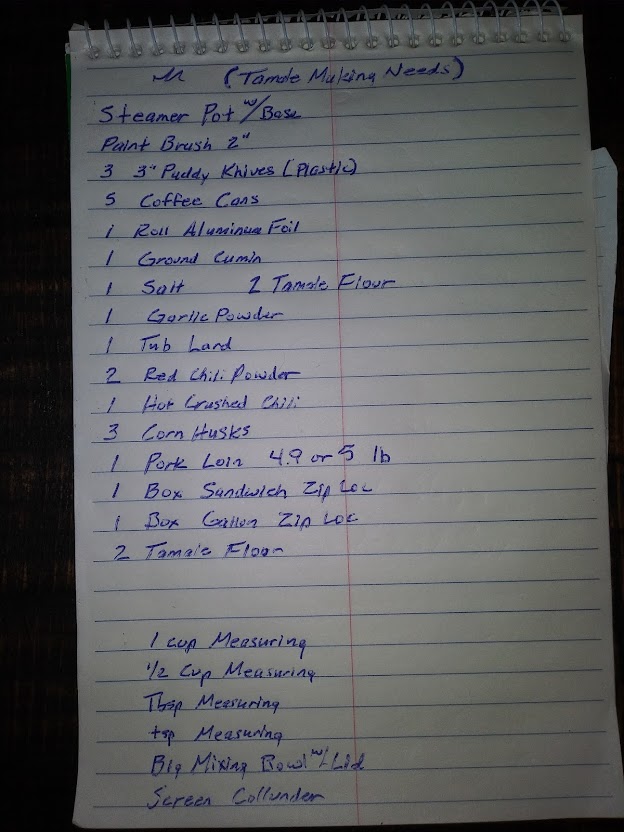 (Tamale Making Needs)
Steamer Pot w/Base
Paint Brush 2"
3 3" Puddy Knives (Plastic)
5 Coffee Cans
1 Roll Aluminum Foil
1 Ground Cumin
1 Salt 2 Tamale Flour
1 Garlic Powder
1 Tub Lard
2 Red Chili Powder
1 Hot Crushed Chili
3 Corn Husks
1 Pork Loin 4.9 or 5 lb
1 Box Sandwich Zip Loc
1 Box Gallon Zip Loc
2 Tamale Floor
1 cup Measuring
1/2 Cup Measuring
Tbsp Measuring
tsp Measuring
Big Mixing Bowl w/Lid
Screen Collunder